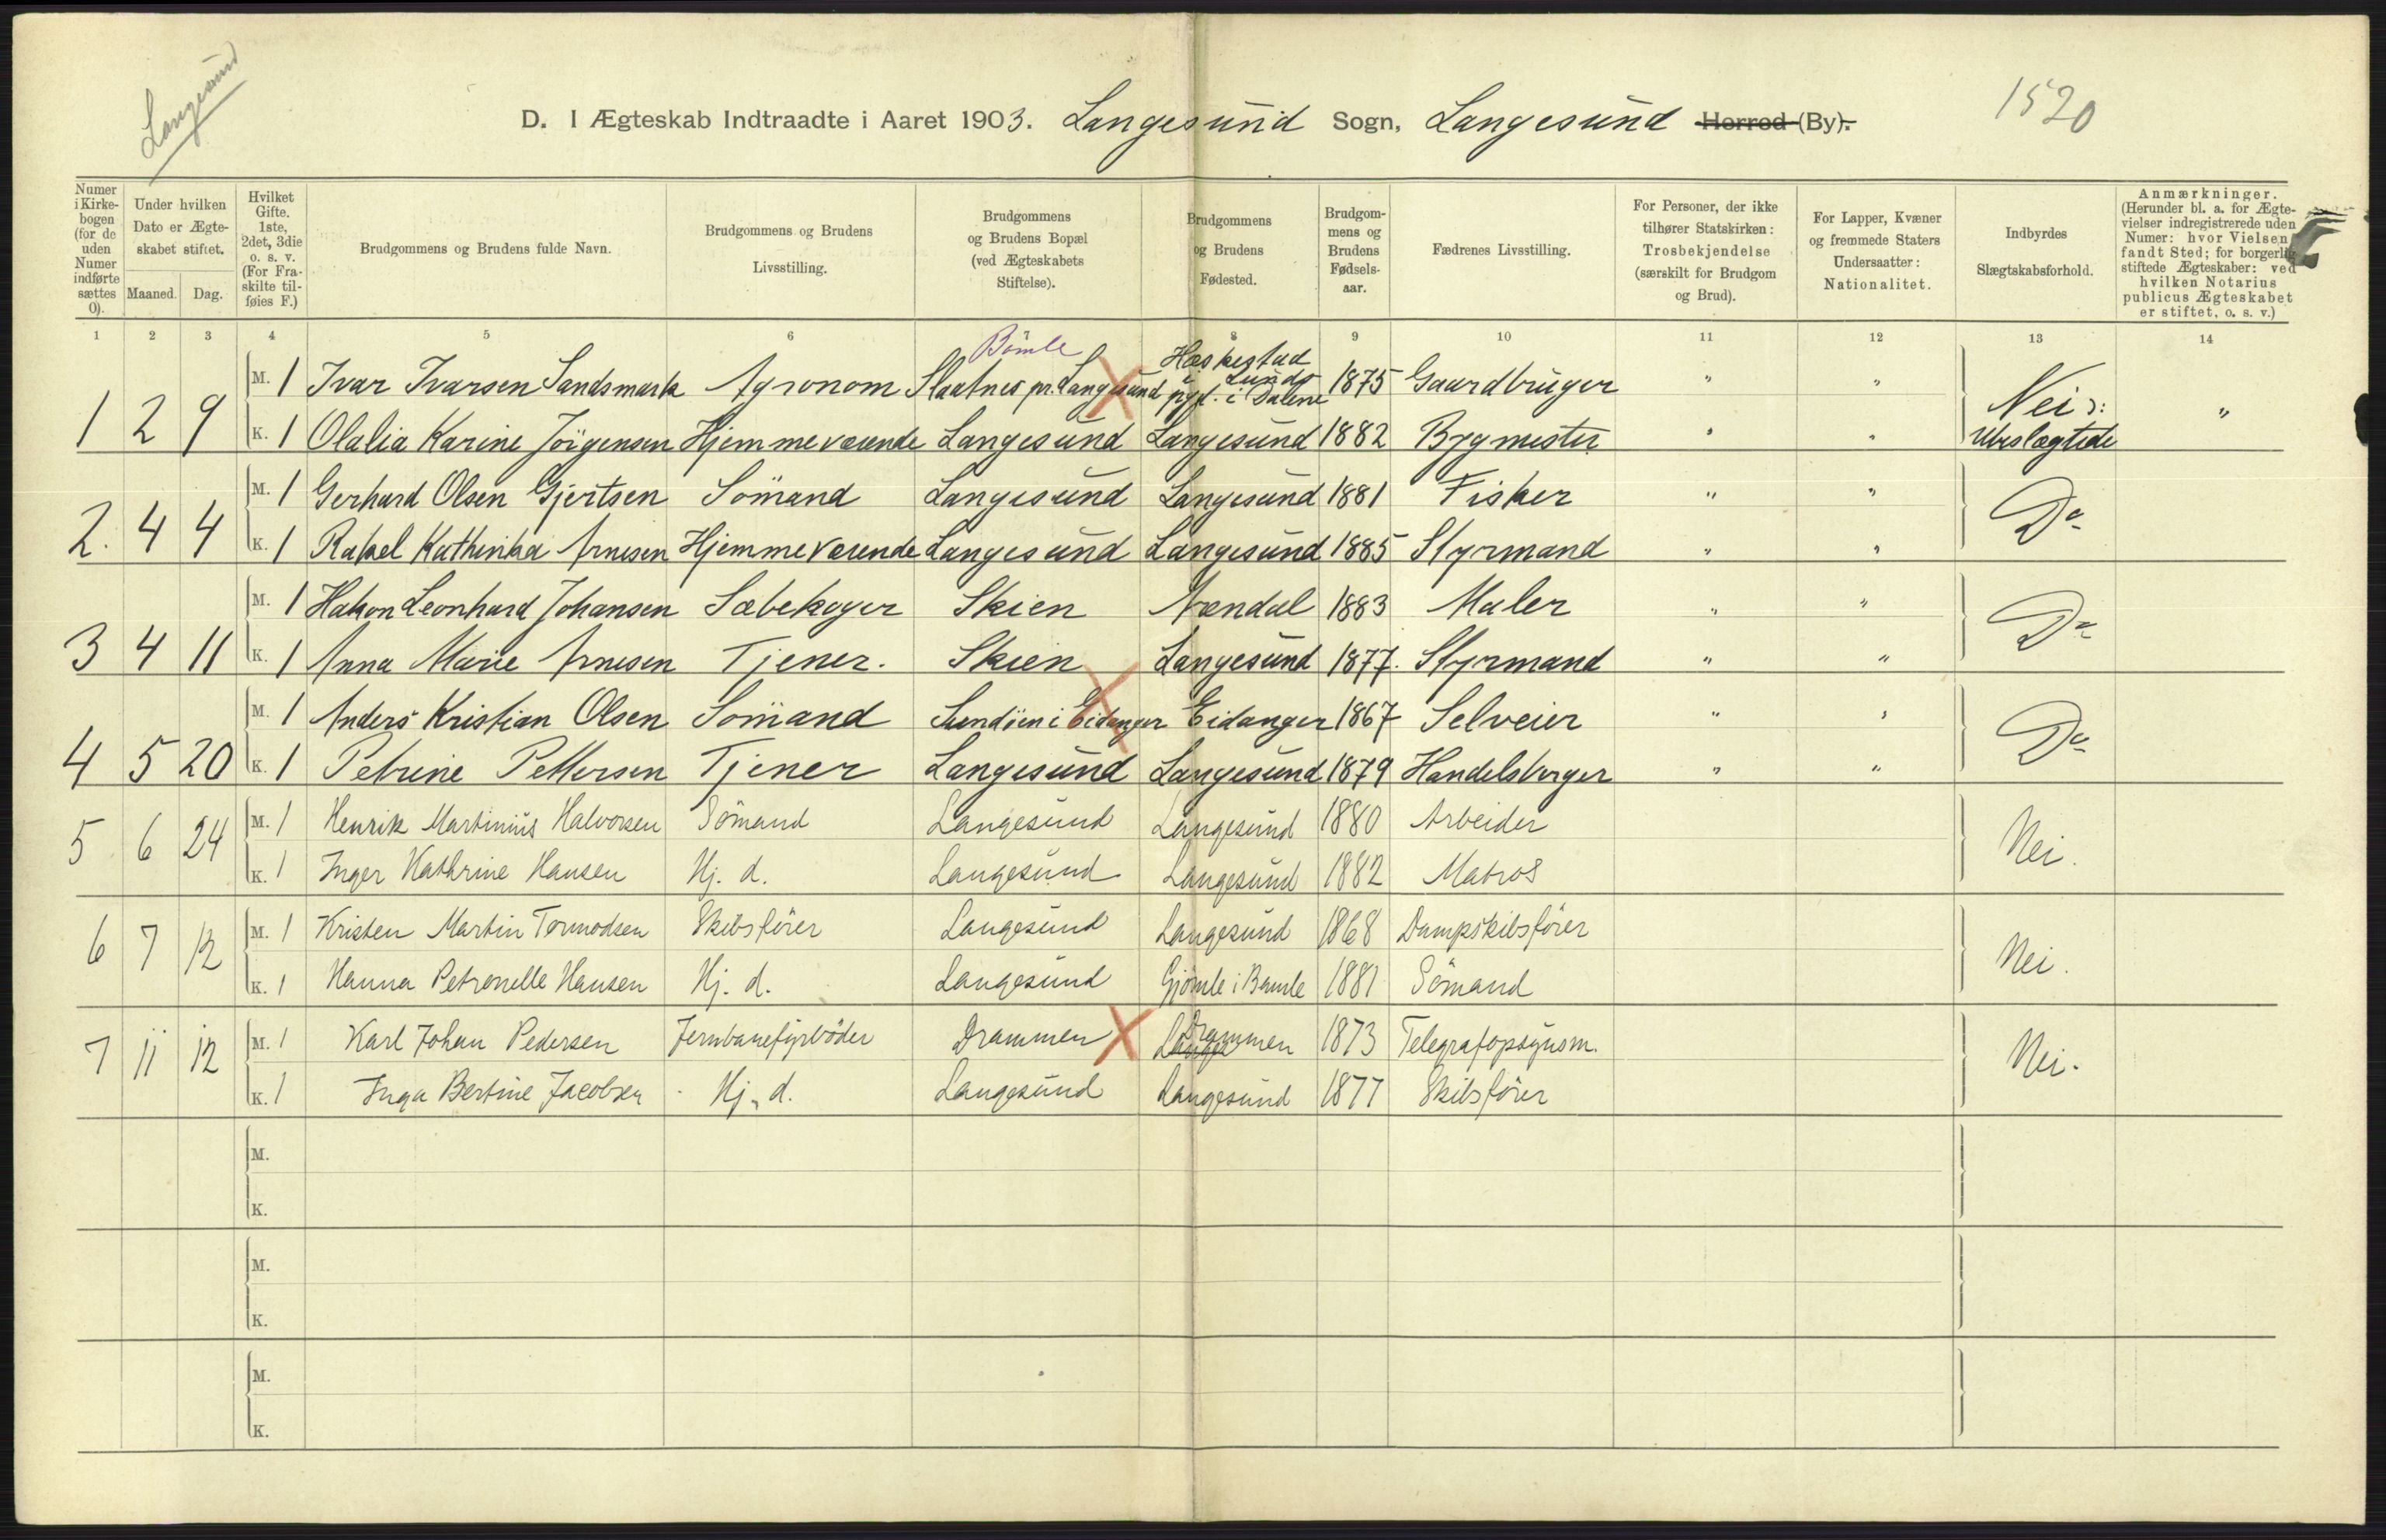 Langesund
D. I Ægteskab Indtraadte i Aaret 1903. Langesund Sogn, Langesund Herred (By).
1520
Numer i Kirkebogen (for de uden Numer indførte sættes 0).
Under hvilken Dato er Ægteskabet stiftet.
Maaned. Dag.
Hvilket Gifte. 1ste, 2det, 3die o. s. v. (For Fraskilte tilføies F.)
Brudgommens og Brudens fulde Navn.
Brudgommens og Brudens Livsstilling.
Brudgommens og Brudens Bopæl (ved Ægteskabets Stiftelse).
Brudgommens og Brudens Fødested.
Brudgommens og Brudens Fødselsaar.
Fædrenes Livsstilling.
For Personer, der ikke tilhører Statskirken: Trosbekjendelse (særskilt for Brudgom og Brud).
For Lapper, Kvæner og fremmede Staters Undersaatter: Nationalitet.
Indbyrdes Slægtskabsforhold.
Anmærkninger. (Herunder bl. a. for Ægtevielser indregistrerede uden Numer: hvor Vielsen fandt Sted; for borgerlig stiftede Ægteskaber: ved hvilken Notarius publicus Ægteskabet er stiftet, o. s. v.)
1 2 3 4 5 6 7 8 9 10 11 12 13 14
Bamle
M. 1 Ivar Ivarsen Sandsmark Agronom Slaatnes pr. Langesund Heskestad i Lunds pgd. i Dalene 1875 Gaardbruger " "
1 2 9 K. 1 Olalia Karine Jörgensen Hjemmeværende Langesund Langesund 1882 Bygmester " " Nei ɔ: Ubeslægtede "
M. 1 Gerhard Olsen Gjertsen Sömand Langesund Langesund 1881 Fisker " "
2. 4 4 K. 1 Rakel Kathinka Arnesen Hjemmeværende Langesund Langesund 1885 Styrmand " " Do
M. 1 Hakon Leonhard Johansen Sæbekoger Skien Arendal 1883 Maler " "
3 4 11 K. 1 Anna Marie Arnesen Tjener. Skien Langesund 1877. Styrmand " " Do
M. 1 Anders Kristian Olsen Sömand i Eidanger Eidanger 1867 Selveier " "
4 5 20 K. 1 Petrine Pettersen Tjener Langesund Langesund 1879 Handelsborger " " Do
5 6 24 M. 1 Henrik Martinius Halvorsen Sömand Langesund Langesund 1880 Arbeider
K. 1 Inger Kathrine Hansen Hj. d. Langesund Langesund 1882 Matros Nei.
6 7 12 M. 1 Kristen Martin Tormodsen Skibsförer Langesund Langesund 1868 Dampskibsförer
K. 1 Hanna Petronelle Hansen Hj. d. Langesund Gjömle i Bamle 1881 Sömand Nei.
7 11 12 M. 1 Karl Johan Pedersen Jernbanefyrböder Drammen Drammen 1873 Telegrafopsynsm.
K. 1 Inga Bertine Jacobsen Hj. d. Langesund Langesund 1877 Skibsförer Nei.
M.
K.
M.
K.
M.
K.